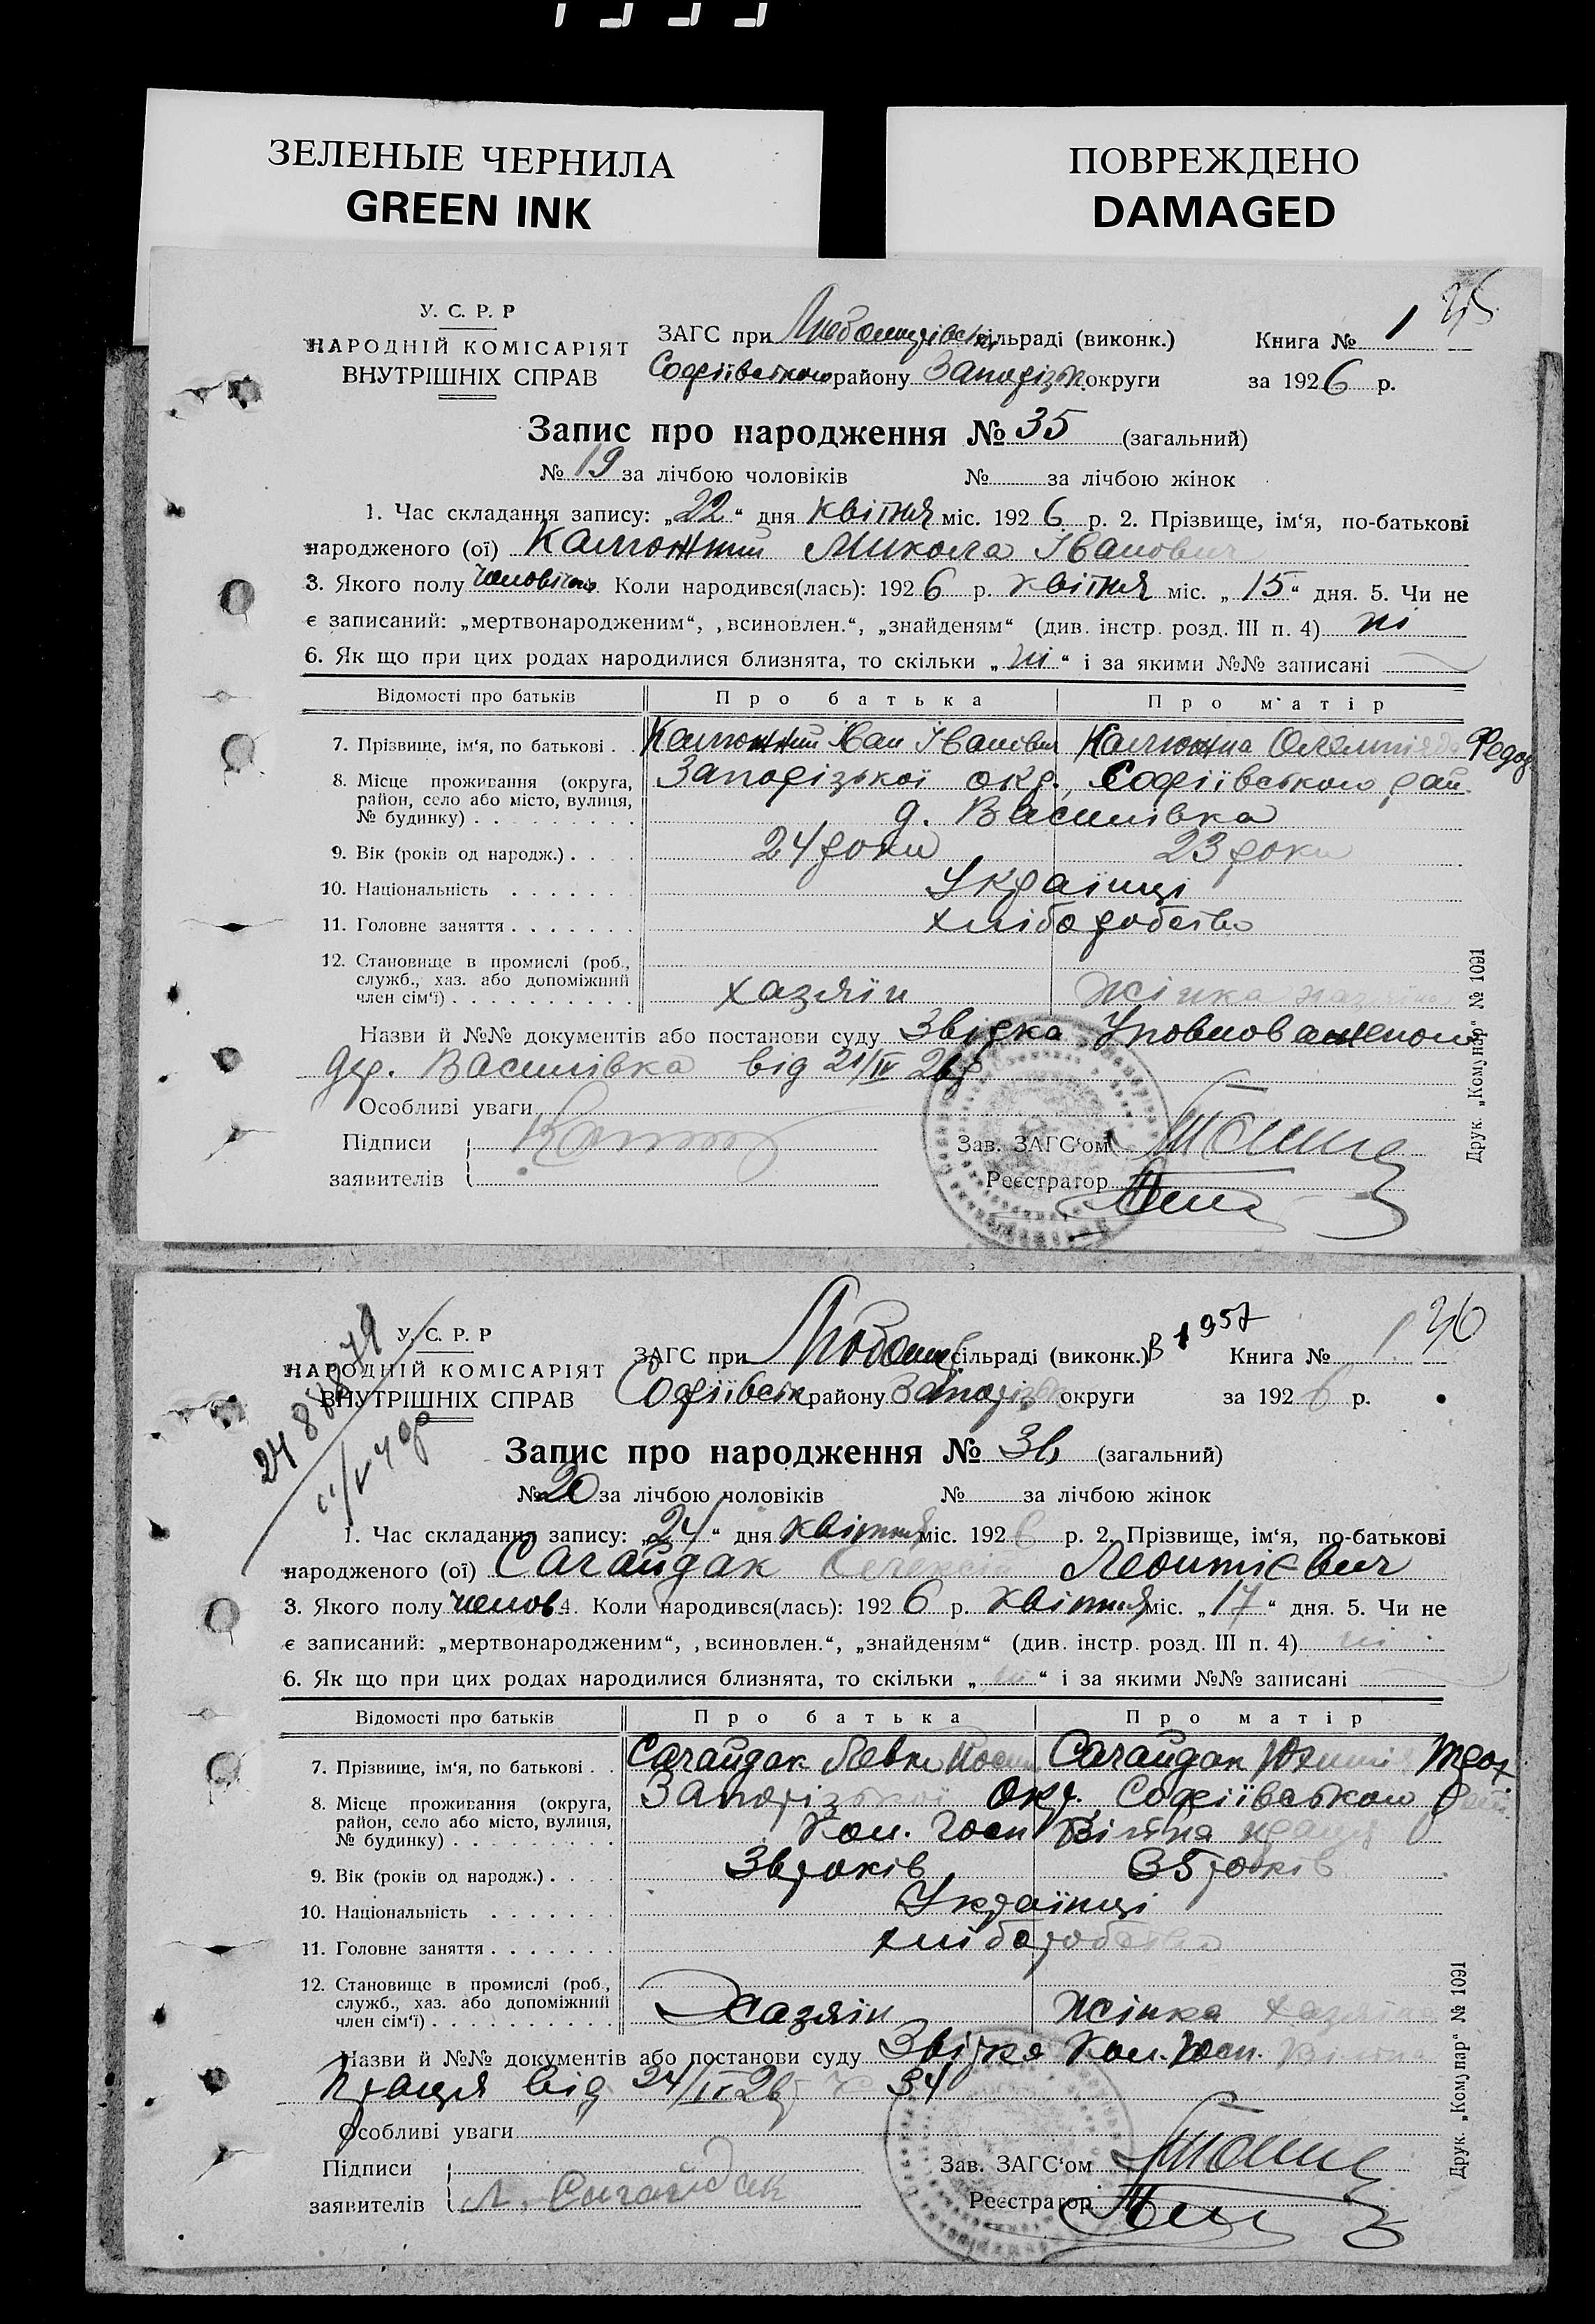 ЗЕЛЕНЫЕ ЧЕРНИЛА
GREEN INK
ПОВРЕЖДЕНО
DAMAGED
У. С. Р. Р
НАРОДНІЙ КОМІСАРІЯТ
ВНУТРІШНІХ СПРАВ
ЗАГС при сільраді (виконк.)
Софіївського району Запоріжк. округи
Книга № 1
за 1926 р.
Запис про народження № 35 (загальний)
№ 19 за лічбою чоловіків № за лічбою жінок
1. Час складання запису: „22“ дня квітня міс. 1926 р. 2. Прізвище, ім‘я, по-батькові
народженого (ої) Калюжний Микола Іванович
3. Якого полу Коли народився(лась): 1926 р. квітня міс. „15“ дня. 5. Чи не
є записаний: „мертвонародженим“, „всиновлен.“, „знайденям“ (див. інстр. розд. III п. 4) ні
6. Як що при цих родах народилися близнята, то скільки „ні“ і за якими №№ записані
Відомості про батьків Про батька Про матір
7. Прізвище, ім‘я, по батькові . . Калюжний Іван Іванович Калюжна Олемпіяда Федор
8. Місце проживання (округа, район, село або місто, вулиця, № будинку) . . . . . . . . . Запорізької окр. Софіївського рай.
д. Василівка
9. Вік (років од народж.) . . . . 24 роки 23 роки
10. Національність . . . . . . Українці
11. Головне заняття . . . . . . . хліборобство
12. Становище в промислі (роб., служб., хаз. або допоміжний член сім‘ї) . . . . . . . . . . хазяїн жінка хазяїна
Назви й №№ документів або постанови суду Звідка Уповноваженого
дер. Василівка від 21/IV 26 р
Особливі уваги
Підписи
заявителів
Зав. ЗАГС‘ом
Реєстратор
Друк. „Комунар“ № 1091
У. С. Р. Р
НАРОДНІЙ КОМІСАРІЯТ
ВНУТРІШНІХ СПРАВ
ЗАГС при сільраді (виконк.)
Софіївськ району Запоріз округи
В 1957
Книга № 1 36
за 1926 р.
Запис про народження № 36 (загальний)
№ 20 за лічбою чоловіків № за лічбою жінок
1. Час складання запису: „24“ дня квітня міс. 1926 р. 2. Прізвище, ім‘я, по-батькові
народженого (ої) Сагайдак Олексій Леонтієвич
3. Якого полу чолов. 4. Коли народився(лась): 1926 р. квітня міс. „17“ дня. 5. Чи не
є записаний: „мертвонародженим“, „всиновлен.“, „знайденям“ (див. інстр. розд. III п. 4) ні
6. Як що при цих родах народилися близнята, то скільки „ні“ і за якими №№ записані
Відомості про батьків Про батька Про матір
7. Прізвище, ім‘я, по батькові . . Сагайдак Левко Сагайдак
8. Місце проживання (округа, район, село або місто, вулиця, № будинку) . . . . . . . . . Запорізької окр. Софіївського рай.
Кол. Госп Вільна праця
9. Вік (років од народж.) . . . . 36 років 35 років
10. Національність . . . . . . Українці
11. Головне заняття . . . . . . . хліборобство
12. Становище в промислі (роб., служб., хаз. або допоміжний член сім‘ї) . . . . . . . . . . Хазяїн жінка хазяїна
Назви й №№ документів або постанови суду Звідка Кол. Госп. Вільна
праця від 24/IV 26 р 34
Особливі уваги
Підписи
заявителів Л. Сагайдак
Зав. ЗАГС‘ом
Реєстратор
Друк. „Комунар“ № 1091